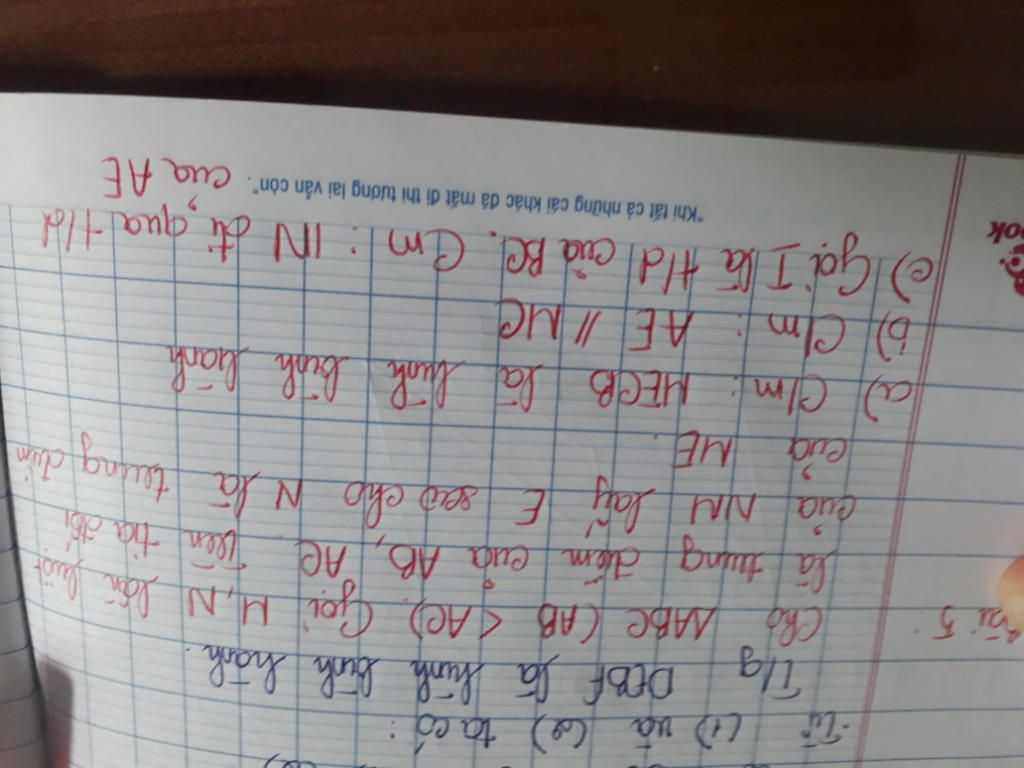 Từ (1) và (2) ta có:
T/g DEBF là hình bình hành.
Bài 5: Cho ΔABC (AB < AC). Gọi M, N lần lượt
là trung điểm của AB, AC. Trên tia đối
của NM lấy E sao cho N là trung điểm
của ME.
a) C/m: MECB là hình bình hành
b) C/m: AE // MC
c) Gọi I là t/đ của BC. Cm: IN đi qua t/đ
của AE
"Khi tất cả những cái khác đã mất đi thì tương lai vẫn còn".
ook